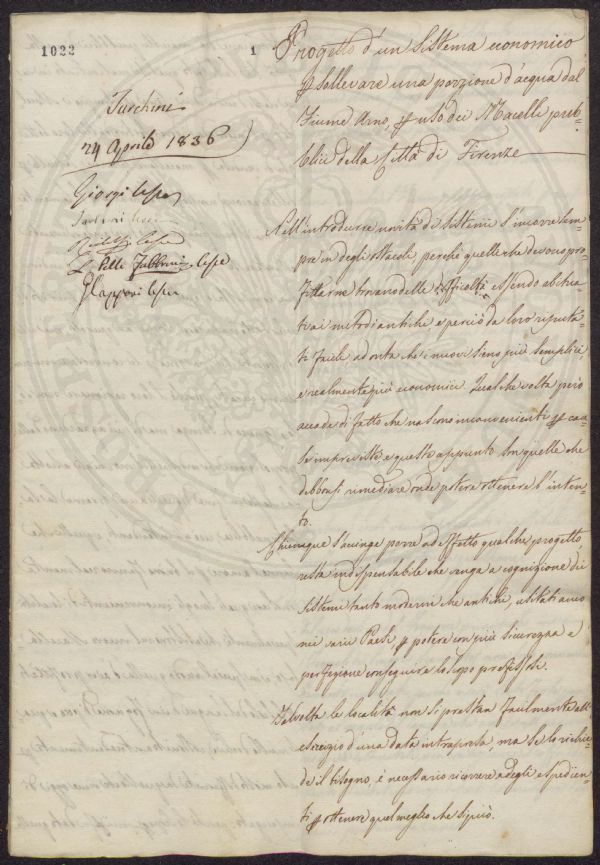 1022
1
Turchini
24 Aprile 1836
Giorgi
Fabbroni
Progetto d'un Sistema economico
p sollevare una porzione d'acqua dal
Fiume Arno, p uso dei Macelli pub-
blici della Città di Firenze
Nell'introdurre novità di Sistemi s'incorre sem-
pre in degli ostacoli, perchè quelli che devono pro-
fittarne trovano delle difficoltà essendo abitua-
ti ai metodi antichi e perciò da loro reputa-
ti facili ad onta che i nuovi sieno più semplici,
e realmente più economici. Qualche volta però
accade di fatto che nascono inconvenienti p cau-
se imprevviste e questo appunto son quelle che
debbonsi rimediare onde potere ottenere l'inten-
to.
Chiunque s'accinge porre ad effetto qualche progetto,
resta indispensabile che venga a cognizione di
Sistemi tanto moderni che antichi, usitati anco
nei varii Paesi p potere con più sicurezza e
perfezione conseguire lo scopo prefissosi.
Talvolta le località non si prestan facilmente all'
eserzizio d'una data intrapresa, ma se lo richie-
de il bisogno, è necessario ricorrere a degli espedien-
ti p ottenere quel meglio che si può.